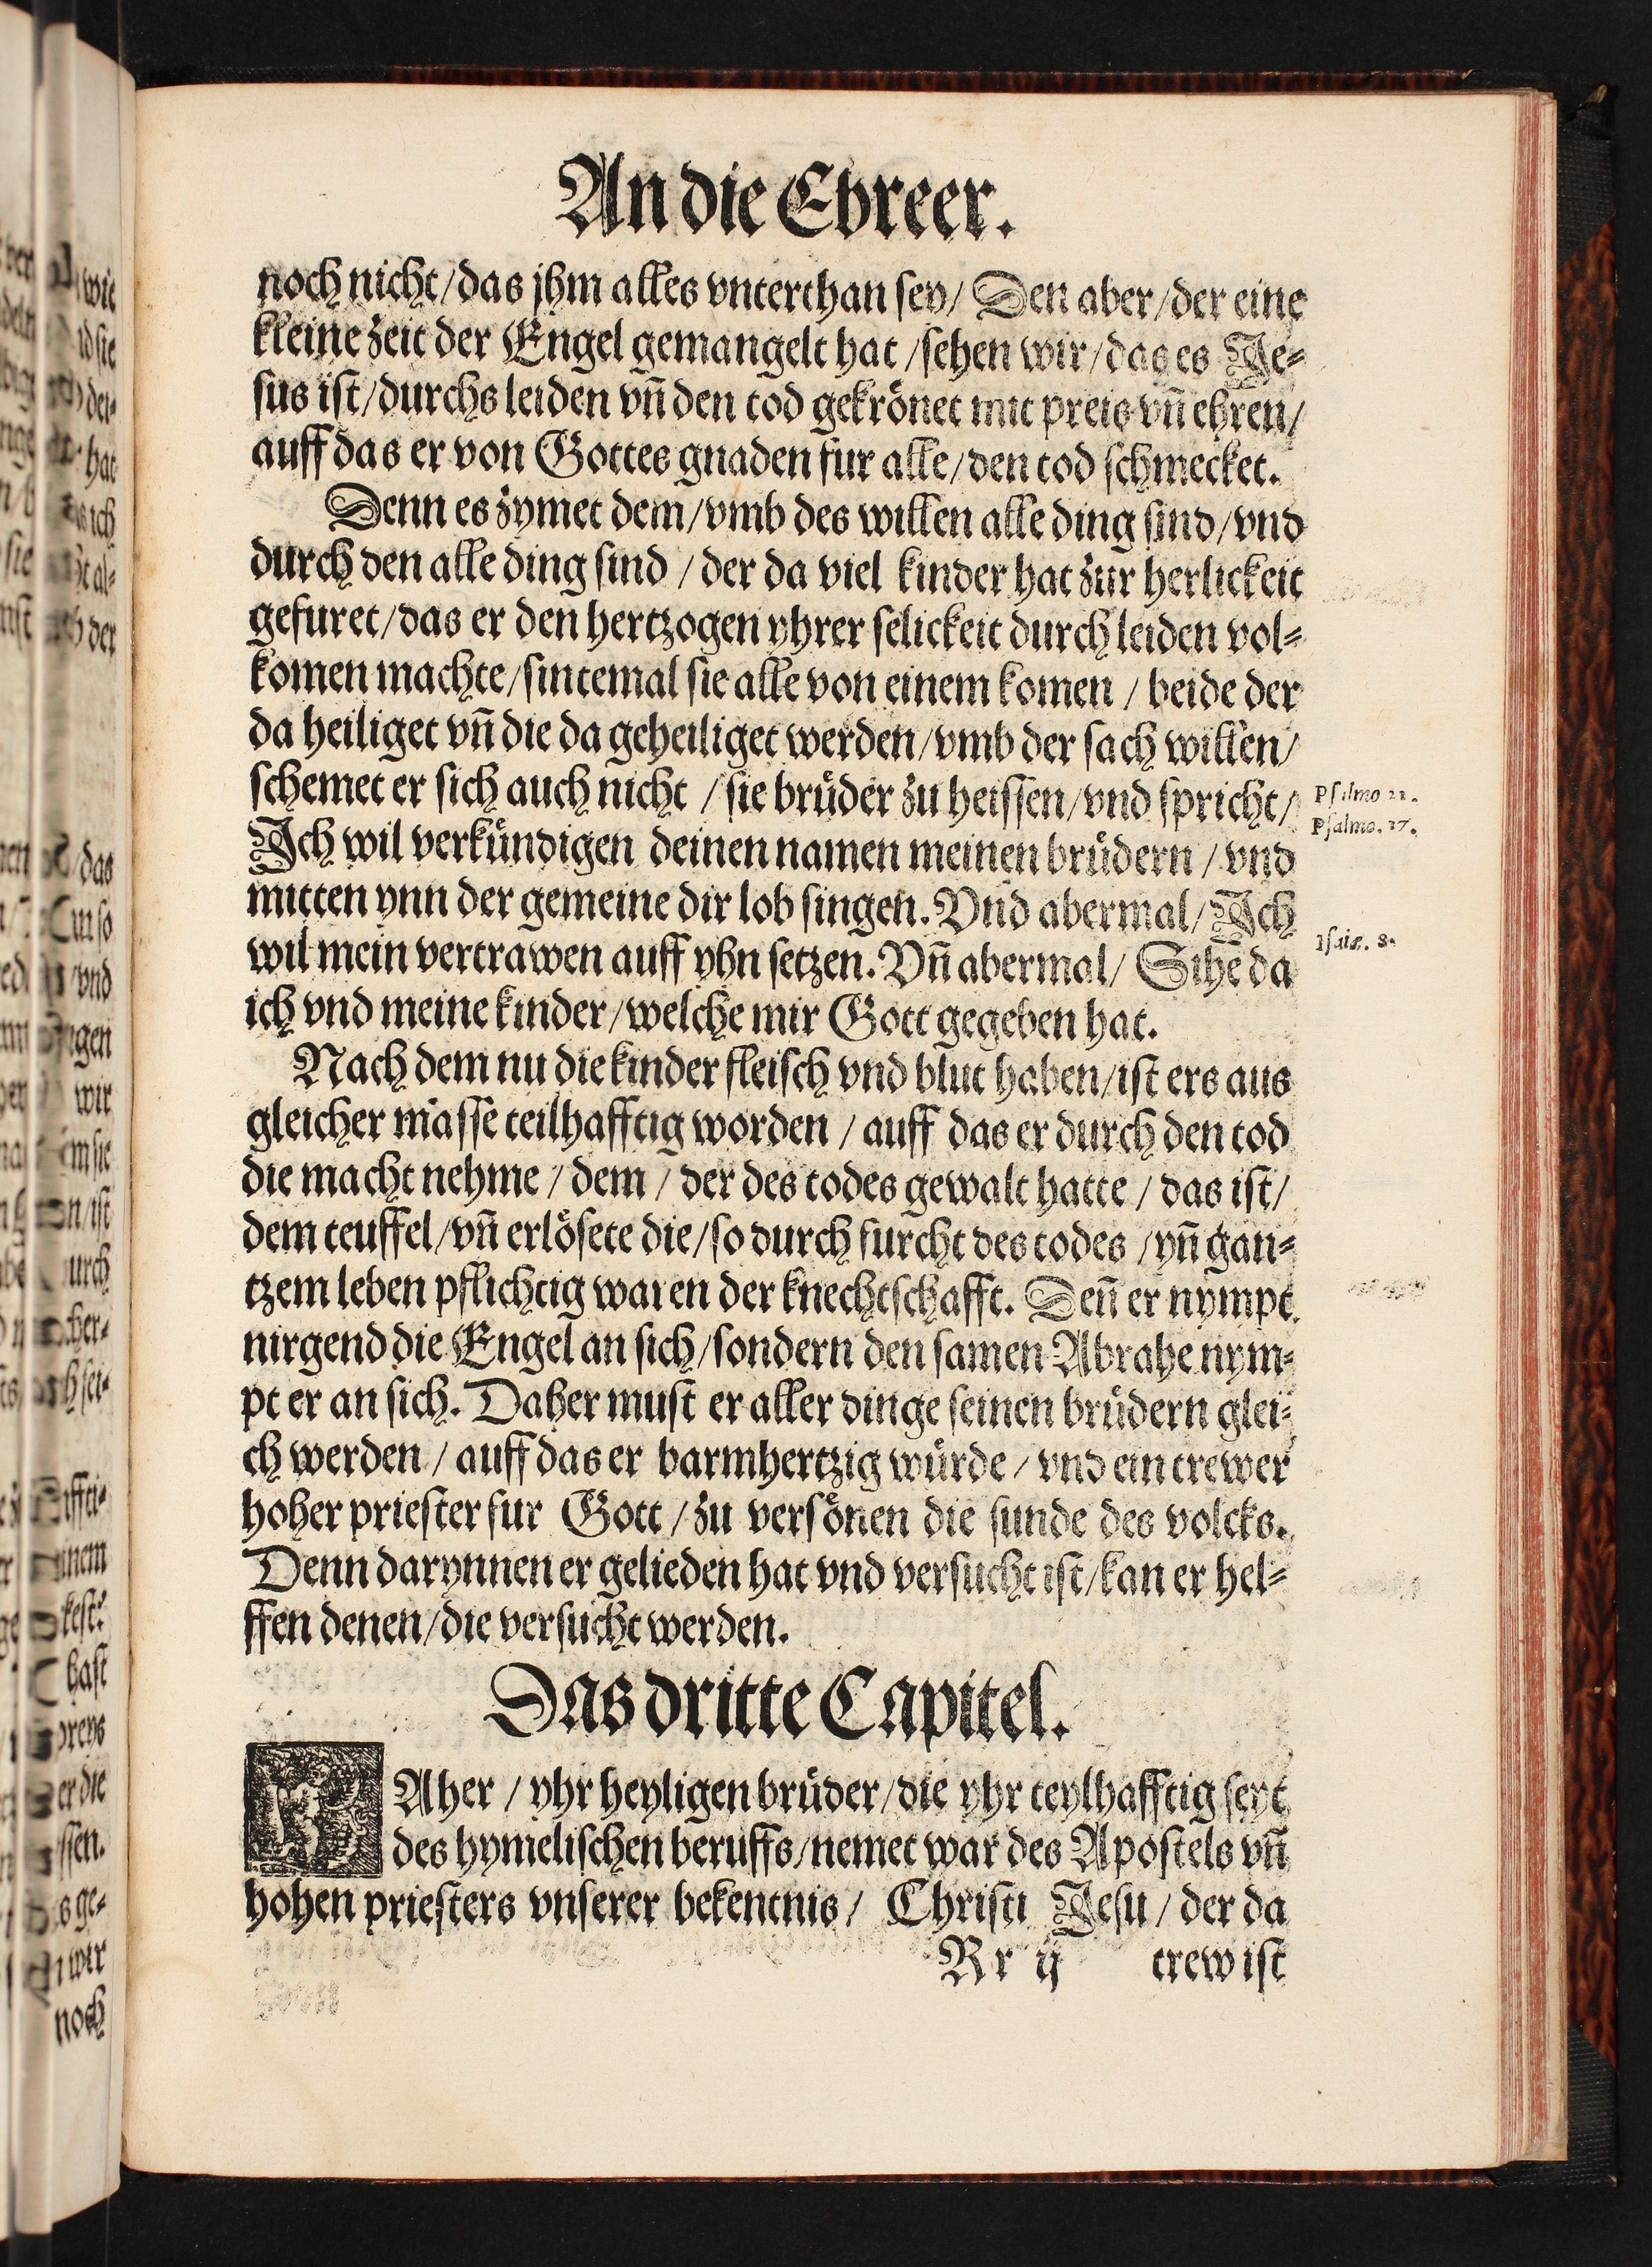 An die Ebreer.
noch nicht/das jhm alles vnterthan sey/ Den aber/der eine
kleine zeit der Engel gemangelt hat/sehen wir/das es Je⸗
sus ist/durchs leiden vn̄ den tod gekrönet mit preis vn̄ ehren/
auff das er von Gottes gnaden fur alle/den tod schmecket.
Denn es zymet dem/vmb des willen alle ding sind/vnd
durch den alle ding sind / der da viel kinder hat zur herlickeit
gefuret/das er den hertzogen yhrer selickeit durch leiden vol⸗
komen machte/sintemal sie alle von einem komen / beide der
da heiliget vn̄ die da geheiliget werden/vmb der sach willen/
schemet er sich auch nicht / sie brüder zu heissen/vnd spricht/
Psalmo 22.
Psalmo. 17.
Ich wil verkündigen deinen namen meinen brüdern / vnd
mitten ynn der gemeine dir lob singen. Vnd abermal/ Ich
wil mein vertrawen auff yhn setzen. Vn̄ abermal/ Sihe da
Isaie. 8.
ich vnd meine kinder/welche mir Gott gegeben hat.
Nach dem nu die kinder fleisch vnd blut haben/ist ers aus
gleicher masse teilhafftig worden / auff das er durch den tod
die macht nehme / dem / der des todes gewalt hatte / das ist/
dem teuffel/vn̄ erlösete die/so durch furcht des todes /yn̄ gan⸗
tzem leben pflichtig waren der knechtschafft. Den̄ er nympt
nirgend die Engel an sich/sondern den samen Abrahe nym⸗
pt er an sich. Daher must er aller dinge seinen brüdern glei⸗
ch werden / auff das er barmhertzig würde / vnd ein trewer
hoher priester fur Gott / zu versönen die sunde des volcks.
Denn darynnen er gelieden hat vnd versucht ist/kan er hel⸗
ffen denen/die versucht werden.
Das dritte Capitel.
DAher / yhr heyligen brüder/die yhr teylhafftig seyt
des hymelischen beruffs/nemet war des Apostels vn̄
hohen priesters vnserer bekentnis/ Christi Jesu / der da
Rr ij trew ist